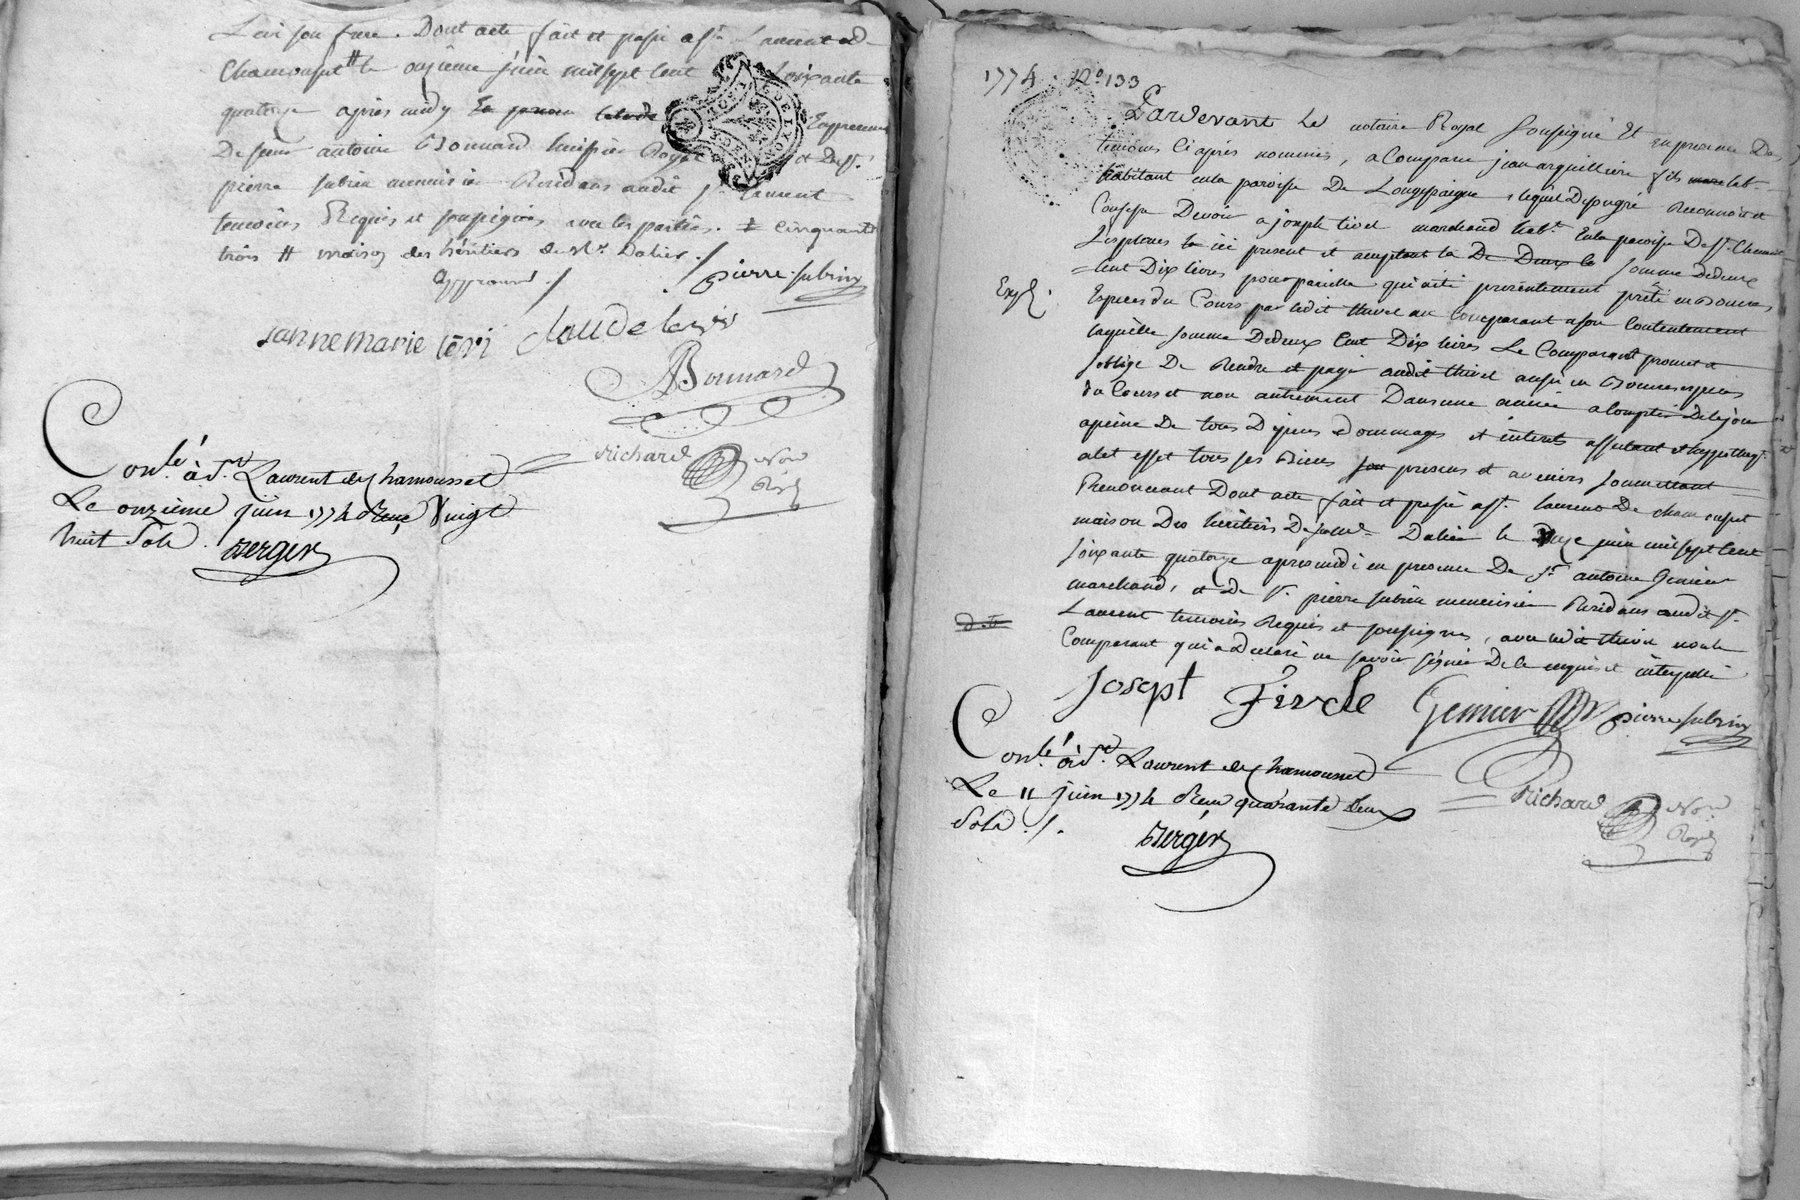 Levi son frere. Dont acte fait et passé a St. Laurent de
Chamousset # le onzieme juin mil sept cent soixante
quatorze après midy En presence
De sieur antoine Bonnard huissier Royal et De Sr.
pierre Subrin menuisier Residans audit St. Laurent
temoins Requis et soussignés avec les parties. # cinquante
trois # maison des héritiers de Mr. Dalier. /
Approuvé. / pierre subrin
janne marie levi claude levi
Bonnard
Richard Not. Royal
Conlé. à St. Laurent de Chamousset
Le onzieme juin 1774 Reçu Vingt
huit sols. Berger
1774. No. 133
Pardevant Le notaire Royal soussigné Et en presence Des
temoins Ci après nommés, a Comparu jean arquilliere fils
habitant en la paroisse De Longessaigne, lequel De son gré Reconnoit et
Confesse Devoir a joseph tivet marchand habt. En la paroisse De St. Clement
Les places ici present et acceptant la somme De deux
Cent Dix livres pour pareille qui a été presentement prêté en Bonnes
Expéd.
Especes du Cours par ledit au Comparant a son Contentement
laquelle somme De deux Cent Dix livres Le Comparant promet et
s'oblige De Rendre et payer audit aussi en Bonnes especes
du Cours et non autrement Dans une année a Compter De ce jour
a peine De tous Dépens Dommages et interets
a cet effet tous ses Biens presens et avenirs soumettant
Renonceant Dont acte fait et passé a St. Laurent De Chamousset
maison Des heritiers De Dalier le onze juin mil sept Cent
soixante quatorze après midi en presence De Sr. antoine Gemier
marchand, et De Sr. pierre subrin menuisier Residans audit St.
Laurent temoins Requis et soussignés, avec ledit non le
Comparant qui a declaré ne savoir signer De ce requis et interpellé
Josept Gemier pierre subrin
Conlé. à St. Laurent de Chamousset
Le 11 juin 1774 Reçu quarante deux
Sols. /. Berger
Richard Not. Royal